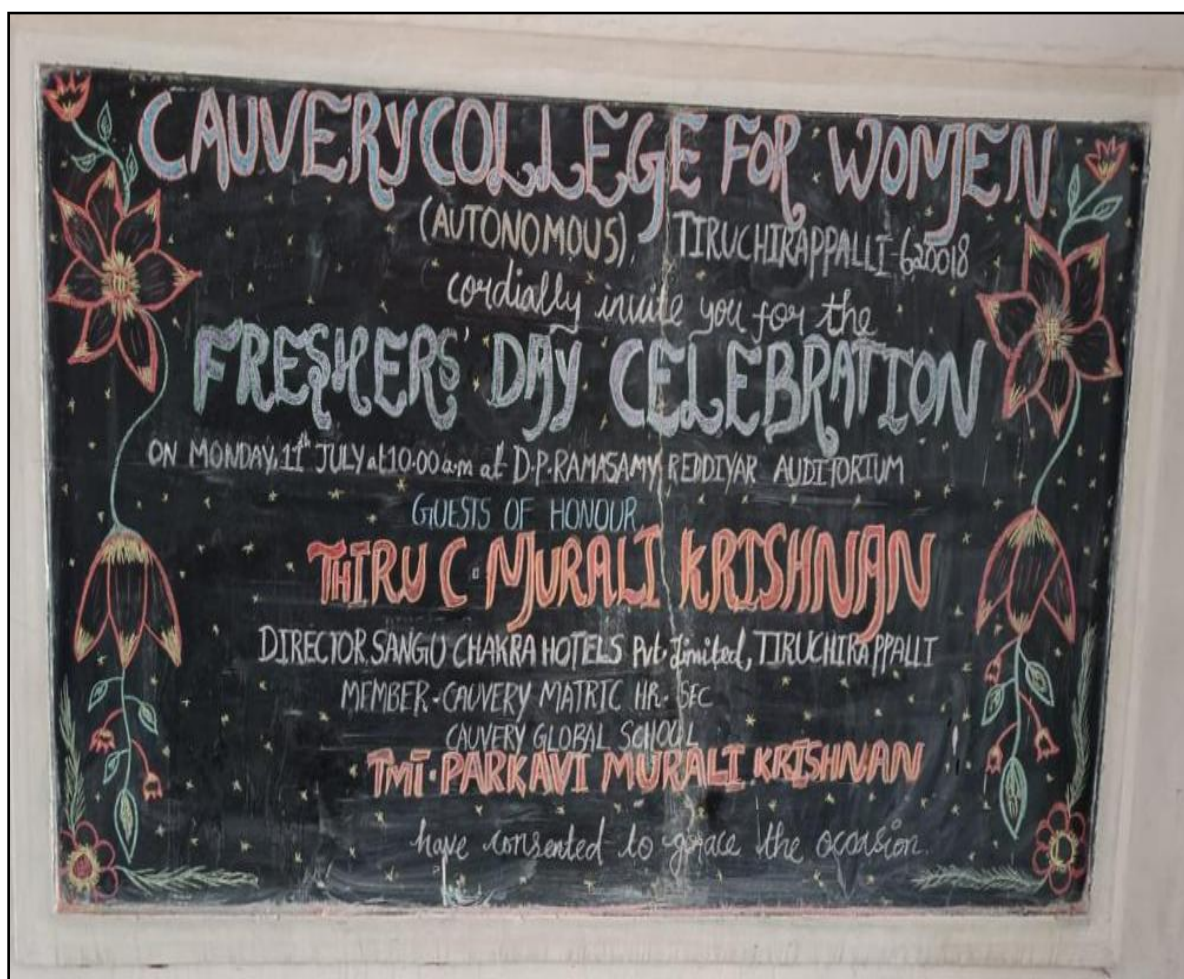 CAUVERY COLLEGE FOR WOMEN
(AUTONOMOUS), TIRUCHIRAPPALLI-620018
cordially invite you for the
FRESHERS' DAY CELEBRATION
ON MONDAY, 11th JULY at 10.00 a.m at D.P.RAMASAMY REDDIYAR AUDITORIUM
GUESTS OF HONOUR
THIRU C. MURALI KRISHNAN
DIRECTOR, SANGU CHAKRA HOTELS Pvt. Limited, TIRUCHIRAPPALLI
MEMBER-CAUVERY MATRIC HR. SEC
CAUVERY GLOBAL SCHOOL
TMT. PARKAVI MURALI KRISHNAN
have consented to grace the occasion.